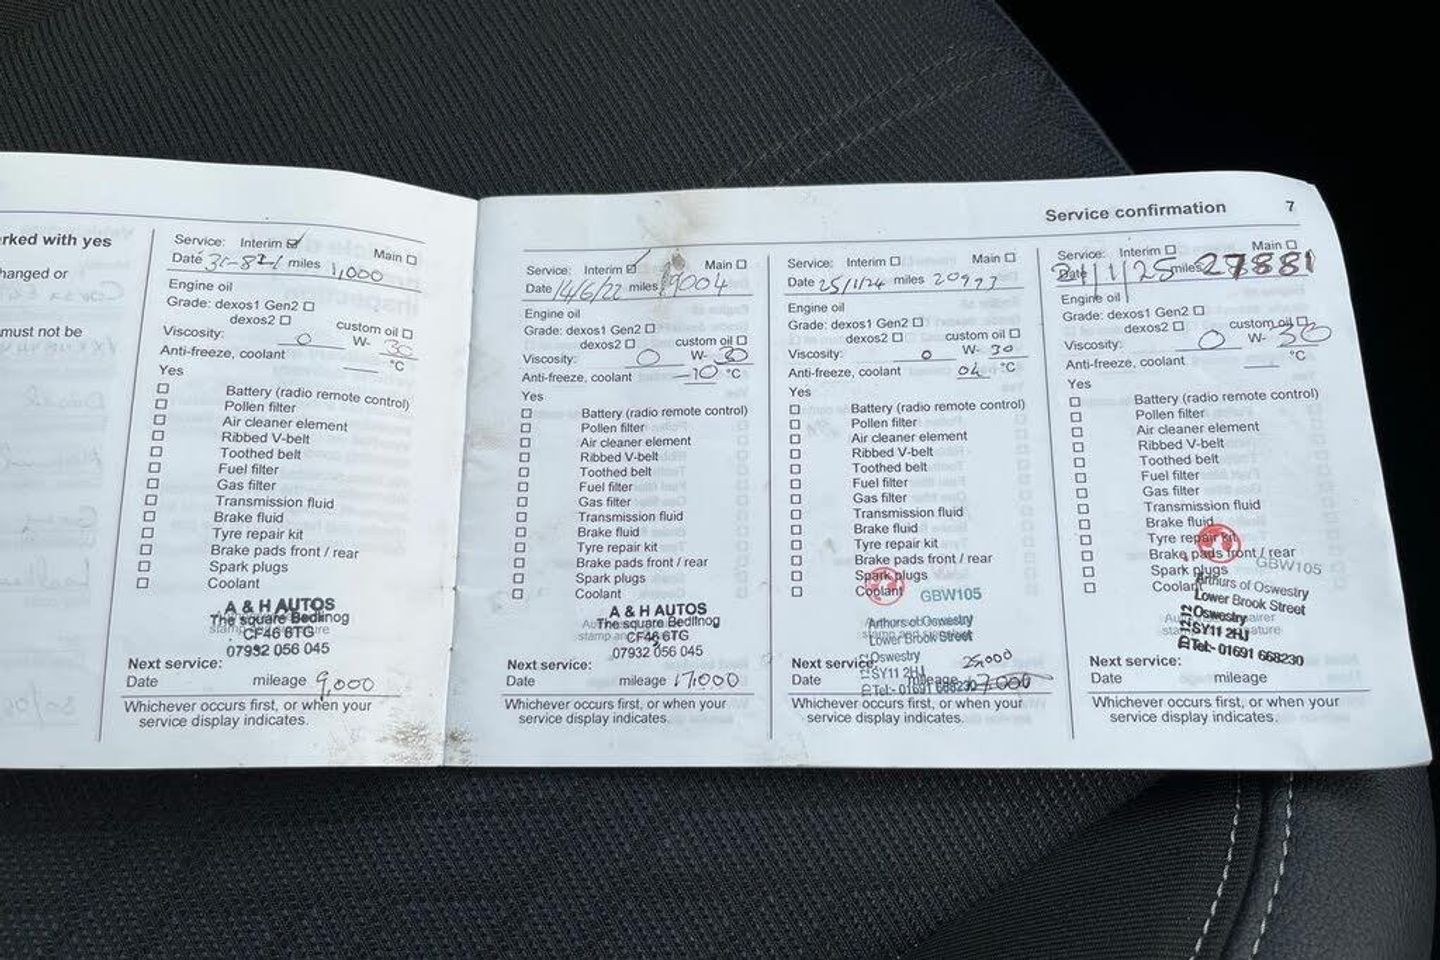 rked with yes
hanged or
must not be
Service: Interim Main
Date miles 1,000
Engine oil
Grade: dexos1 Gen2
dexos2 custom oil
Viscosity: 0 W- 30
Anti-freeze, coolant °C
Yes
Battery (radio remote control)
Pollen filter
Air cleaner element
Ribbed V-belt
Toothed belt
Fuel filter
Gas filter
Transmission fluid
Brake fluid
Tyre repair kit
Brake pads front / rear
Spark plugs
Coolant
A & H AUTOS
The square Bedlinog
CF46 6TG
07932 056 045
Next service:
Date mileage 9,000
Whichever occurs first, or when your
service display indicates.
Service: Interim Main
Date 14/6/22 miles 9004
Engine oil
Grade: dexos1 Gen2
dexos2 custom oil
Viscosity: 0 W- 30
Anti-freeze, coolant -10 °C
Yes
Battery (radio remote control)
Pollen filter
Air cleaner element
Ribbed V-belt
Toothed belt
Fuel filter
Gas filter
Transmission fluid
Brake fluid
Tyre repair kit
Brake pads front / rear
Spark plugs
Coolant
A & H AUTOS
The square Bedlinog
CF46 6TG
07932 056 045
Next service:
Date mileage 17,000
Whichever occurs first, or when your
service display indicates.
Service confirmation 7
Service: Interim Main
Date 25/1/24 miles 20977
Engine oil
Grade: dexos1 Gen2
dexos2 custom oil
Viscosity: 0 W- 30
Anti-freeze, coolant 04 °C
Yes
Battery (radio remote control)
Pollen filter
Air cleaner element
Ribbed V-belt
Toothed belt
Fuel filter
Gas filter
Transmission fluid
Brake fluid
Tyre repair kit
Brake pads front / rear
Spark plugs
Coolant GBW105
Arthurs of Oswestry
Lower Brook Street
Oswestry
SY11 2HJ
Tel:- 01691 668230
Next service: 25,000
Date mileage
Whichever occurs first, or when your
service display indicates.
Service: Interim Main
Date 21/1/25 miles 27881
Engine oil
Grade: dexos1 Gen2
dexos2 custom oil
Viscosity: 0 W- 30
Anti-freeze, coolant °C
Yes
Battery (radio remote control)
Pollen filter
Air cleaner element
Ribbed V-belt
Toothed belt
Fuel filter
Gas filter
Transmission fluid
Brake fluid
Tyre repair kit
Brake pads front / rear
Spark plugs GBW105
Coolant
Arthurs of Oswestry
Lower Brook Street
Oswestry
SY11 2HJ
Tel:- 01691 668230
Next service:
Date mileage
Whichever occurs first, or when your
service display indicates.